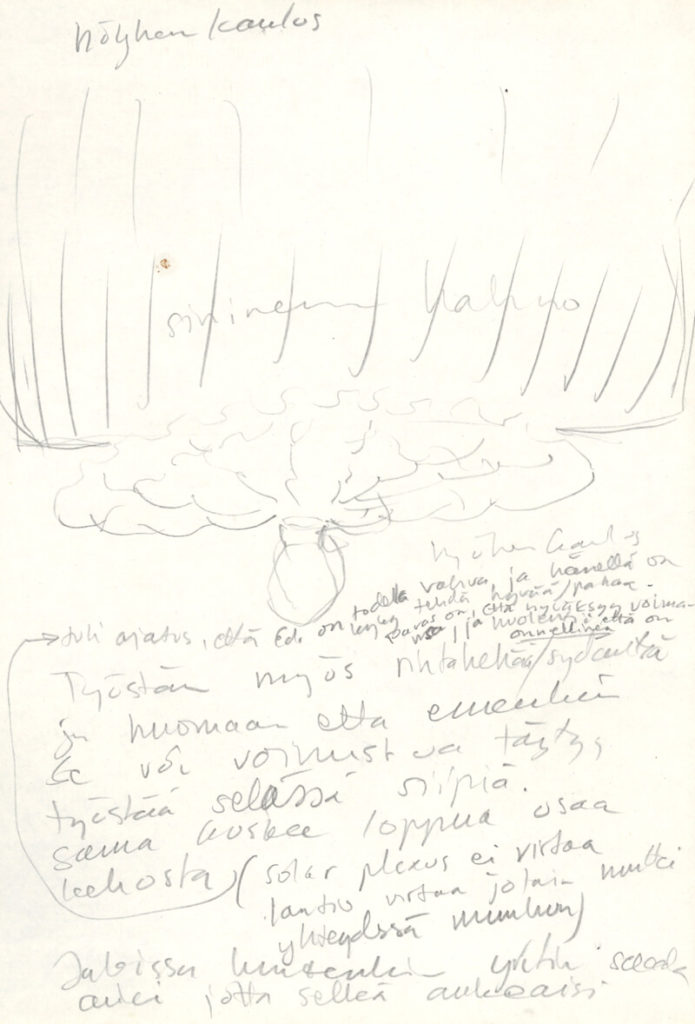 höyhen kaulus
sininen hahmo
höyhen kaulus
→ tuli ajatus, että Ed. on todella vahva, ja hänellä on
kyky tehdä hyvää/pahaa.
paras on, että hyväksyy voiman-
sa ja että on
onnellinen
Työstän myös rintakehää/sydäntä
ja huomaan että enemkin
se voi voimistua täytyy
työstää selässä siipiä.
sama koskee loppua osaa
kehosta (solar plexus ei virtaa
lantio virtaa jotain mutta
yhteydessä muuhun)
Jaloissa kuitenkin yritin saada
auki jotta selkä aukeaisi